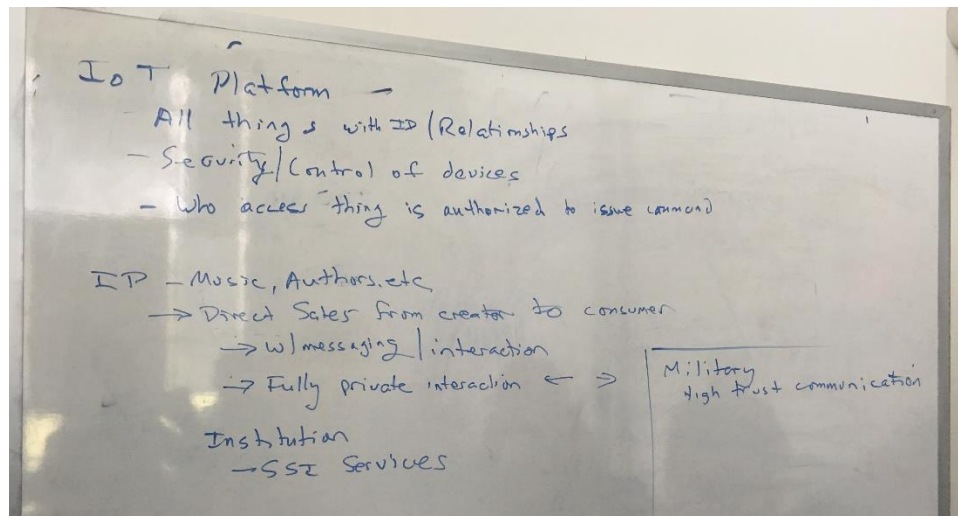 IoT Platform –
All things with ID/Relationships
- Security/Control of devices
- Who access thing is authorized to issue command
IP - Music, Authors, etc
→ Direct Sales from creator to consumer
→ w/messaging/interaction
→ Fully private interaction ← →
Military
High trust communication
Institution
→ SSI Services